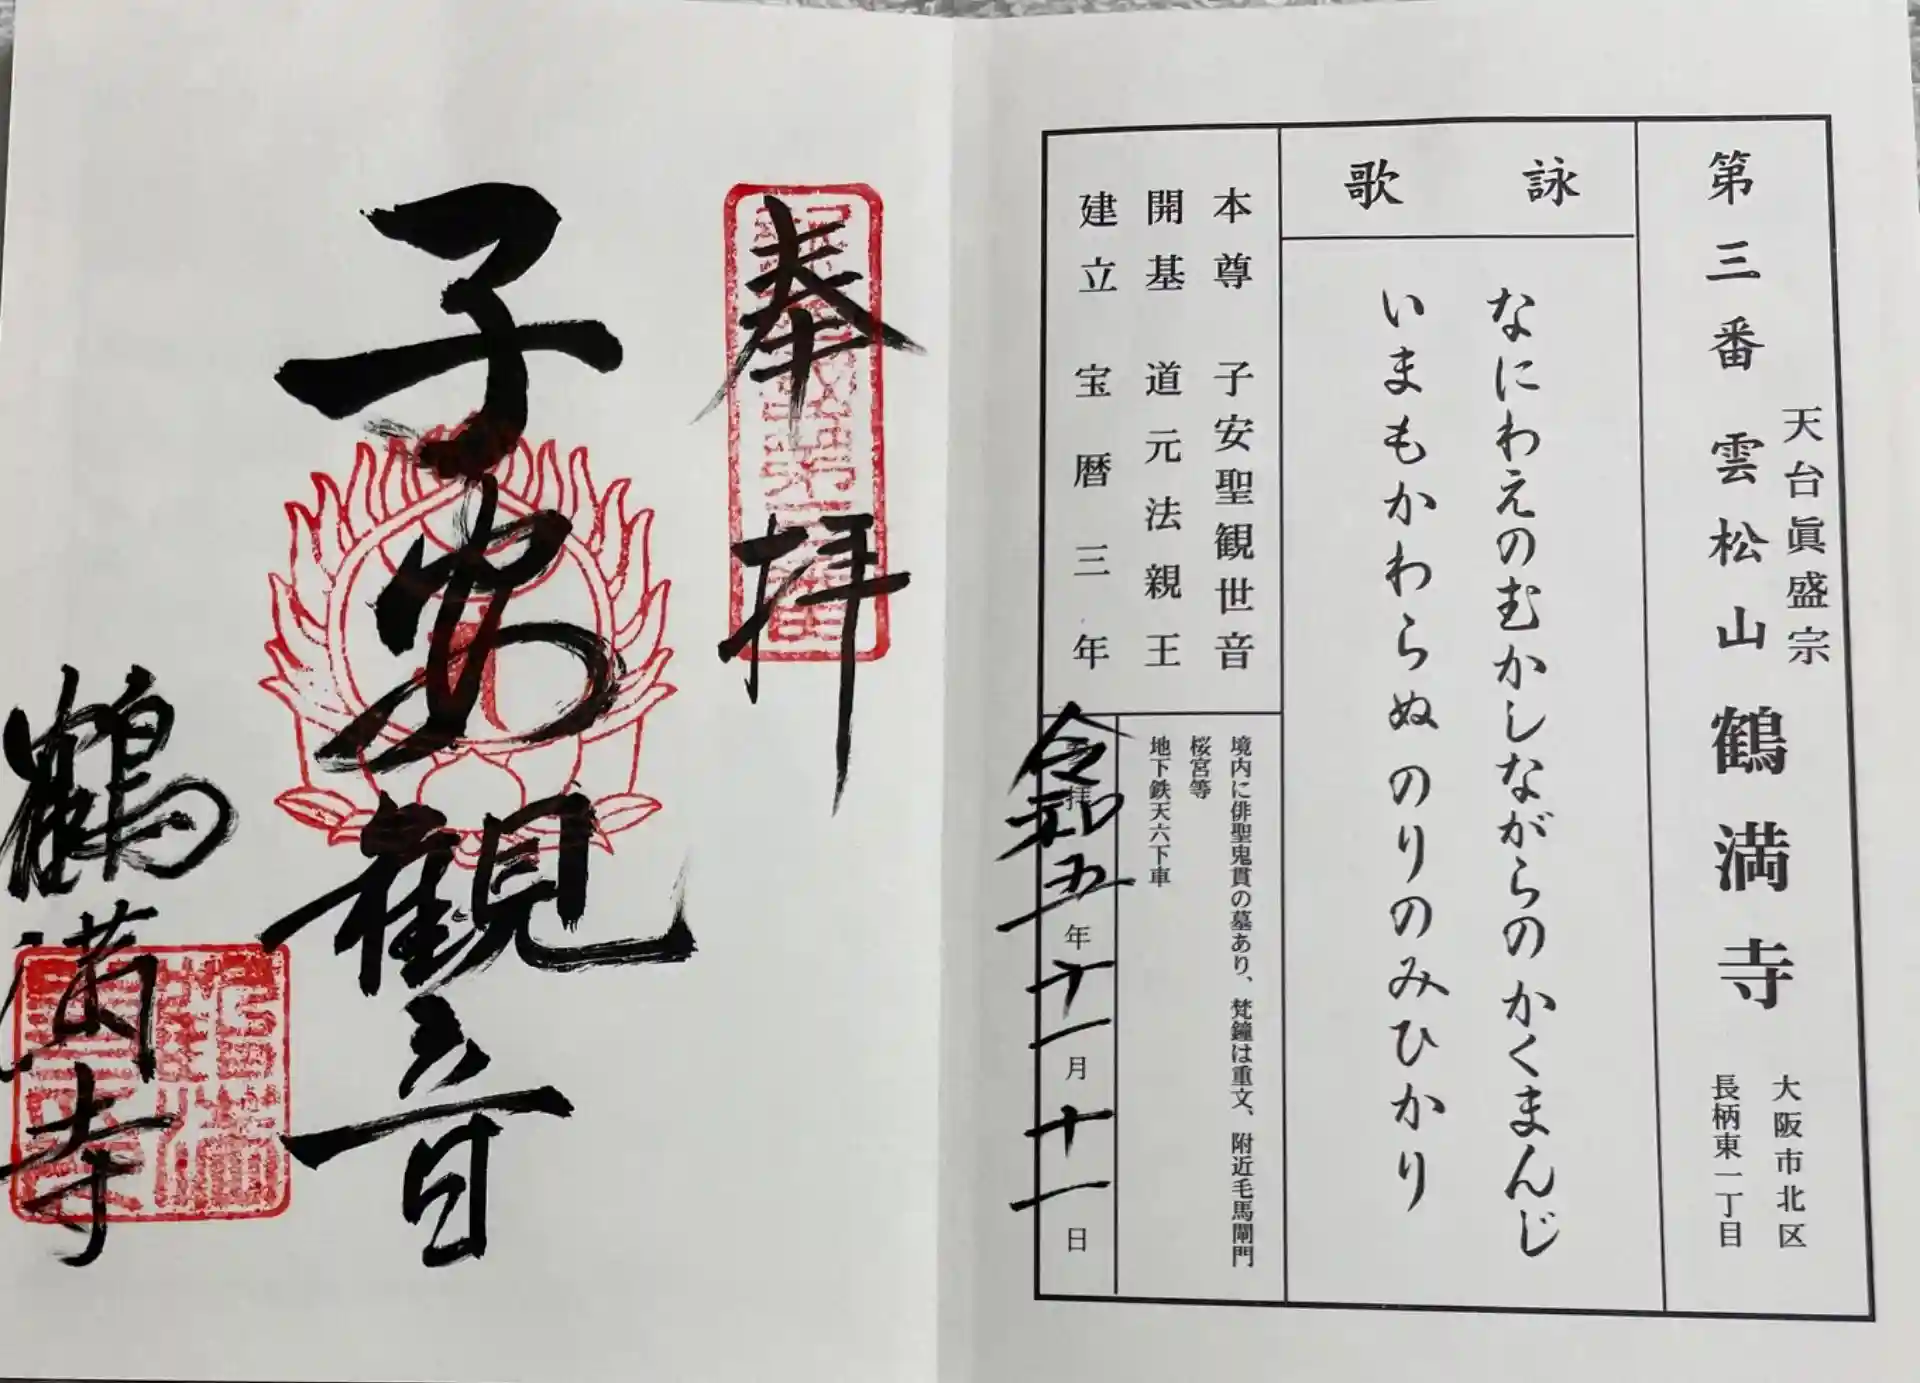 第三番 雲松山 鶴満寺
天台眞盛宗
大阪市北区
長柄東一丁目
詠歌
なにわえのむかしながらのかくまんじ
いまもかわらぬのりのみひかり
本尊 子安聖観世音
開基 道元法親王
建立 宝暦三年
境内に俳聖鬼貫の墓あり、梵鐘は重文、附近毛馬閘門
桜宮等
地下鉄天六下車
令和五年十一月十一日
奉拝
子安観音
鶴満寺